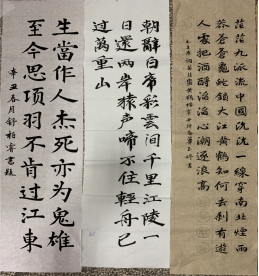 茫茫九派流中國沉沉一線穿南北煙雨
莽蒼蒼龜蛇鎖大江黄鶴知何去剩有遊
人處把酒酹滔滔心潮逐浪高
朝辭白帝彩雲間千里江陵一
日還兩岸猿声啼不住輕舟已
過萬重山
生當作人杰死亦为鬼雄
至今思项羽不肯过江東
辛丑春月舒柏睿書題